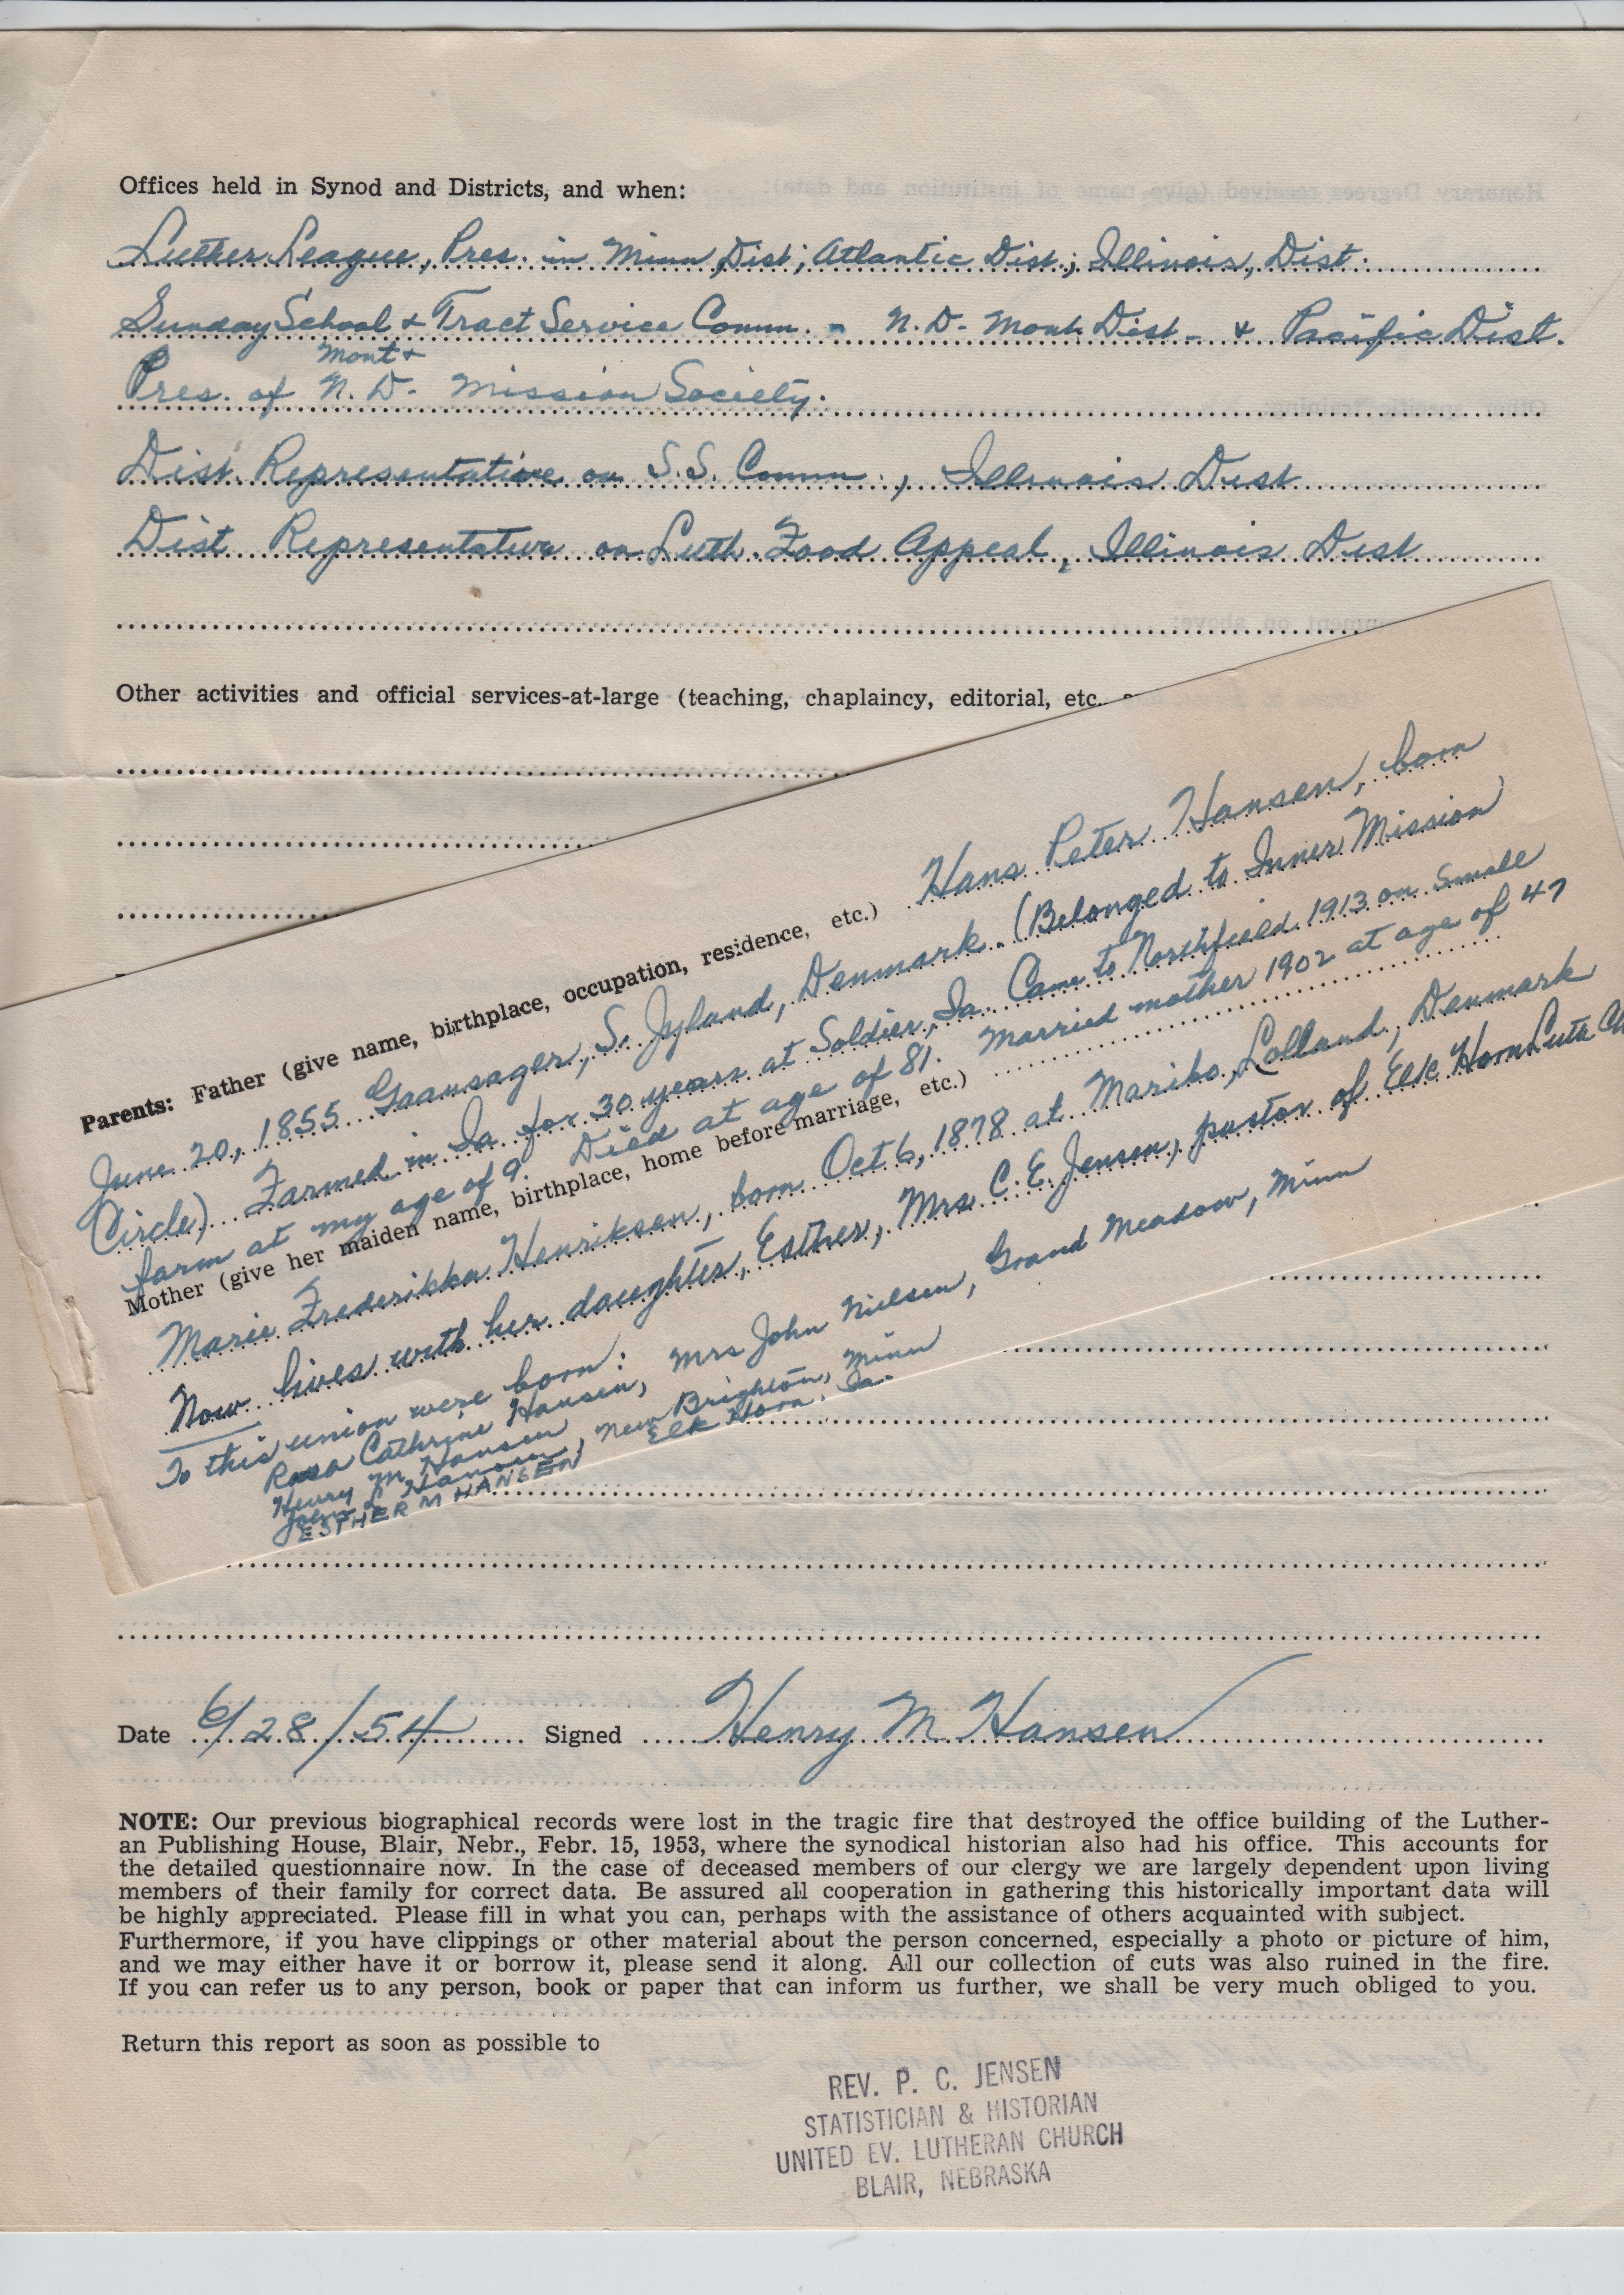 Offices held in Synod and Districts, and when:
Luther League, Pres. in Minn Dist; Atlantic Dist; Illinois, Dist.
Sunday School & Tract Service Comm. - N.D.- Mont. Dist - & Pacific Dist.
Mont &
Pres. of N. D. Mission Society.
Dist. Representative on S.S. Comm., Illinois Dist
Dist Representative on Luth. Food Appeal, Illinois Dist
Other activities and official services-at-large (teaching, chaplaincy, editorial, etc.
Parents: Father (give name, birthplace, occupation, residence, etc.) Hans Peter Hansen, born
June 20, 1855 Gaansager, S. Jyland, Denmark. (Belonged to Inner Mission
Circle) Farmed in Ia. for 30 years at Soldier, Ia. Came to Northfield 1913 on small
farm at my age of 9. Died at age of 81. Married mother 1902 at age of 47
Mother (give her maiden name, birthplace, home before marriage, etc.)
Marie Frederikka Henriksen, born Oct 6, 1878 at Maribo, Lolland, Denmark
Now lives with her daughter, Esther, Mrs C. E. Jensen, pastor of Elk Horn Luth Ch
To this union were born:
Rosa Cathrine Hansen, Mrs John Nielsen, Grand Meadow, Minn
Henry M Hansen
John L Hansen, New Brighton, Minn
ESTHER M HANSEN Elk Horn, Ia.
Date 6/28/54 Signed Henry M Hansen
NOTE: Our previous biographical records were lost in the tragic fire that destroyed the office building of the Luther-
an Publishing House, Blair, Nebr., Febr. 15, 1953, where the synodical historian also had his office. This accounts for
the detailed questionnaire now. In the case of deceased members of our clergy we are largely dependent upon living
members of their family for correct data. Be assured all cooperation in gathering this historically important data will
be highly appreciated. Please fill in what you can, perhaps with the assistance of others acquainted with subject.
Furthermore, if you have clippings or other material about the person concerned, especially a photo or picture of him,
and we may either have it or borrow it, please send it along. All our collection of cuts was also ruined in the fire.
If you can refer us to any person, book or paper that can inform us further, we shall be very much obliged to you.
Return this report as soon as possible to
REV. P. C. JENSEN
STATISTICIAN & HISTORIAN
UNITED EV. LUTHERAN CHURCH
BLAIR, NEBRASKA